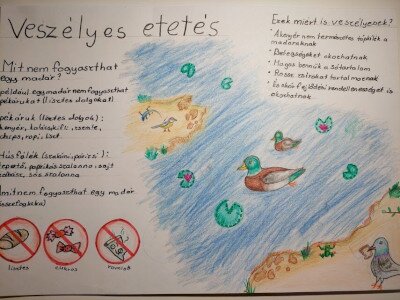 Veszélyes etetés
Mit nem fogyaszthat
egy madár?
például egy madár nem fogyaszthat
pékárukat (lisztes dolgokat)
pékáruk (lisztes dolgok):
kenyér, kalács, kifli, zsemle,
chips, ropi, liszt
Húsfélék (szalámi, párizsi):
paprikás szalonna, sajt
sós szalonna
Amit nem fogyaszthat egy madár
összefoglalva)
lisztes
cukros
Ezek miért is veszélyesek?
A kenyér nem természetes táplálék a
madaraknak
Betegségeket okozhatnak
Magas bennük a sótartalom
Rossz zsírokat tartalmaznak
fejlődési rendellenességet is
okozhatnak